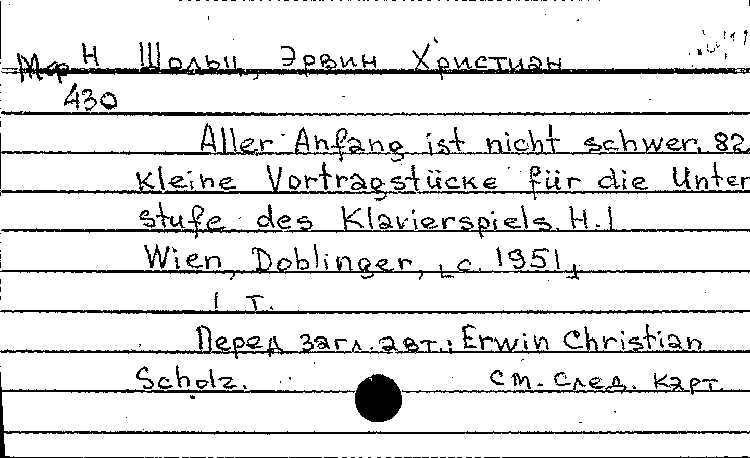 Мф Н Шольц, Эрвин Христиан
430
Aller Anfang ist nicht schwer. 82
kleine Vortragstücke für die Unter
stufe des Klavierspiels. H. 1
Wien, Doblinger, [c. 1951]
1 т.
Перед загл. авт.: Erwin Christian
Scholz. См. след. карт.